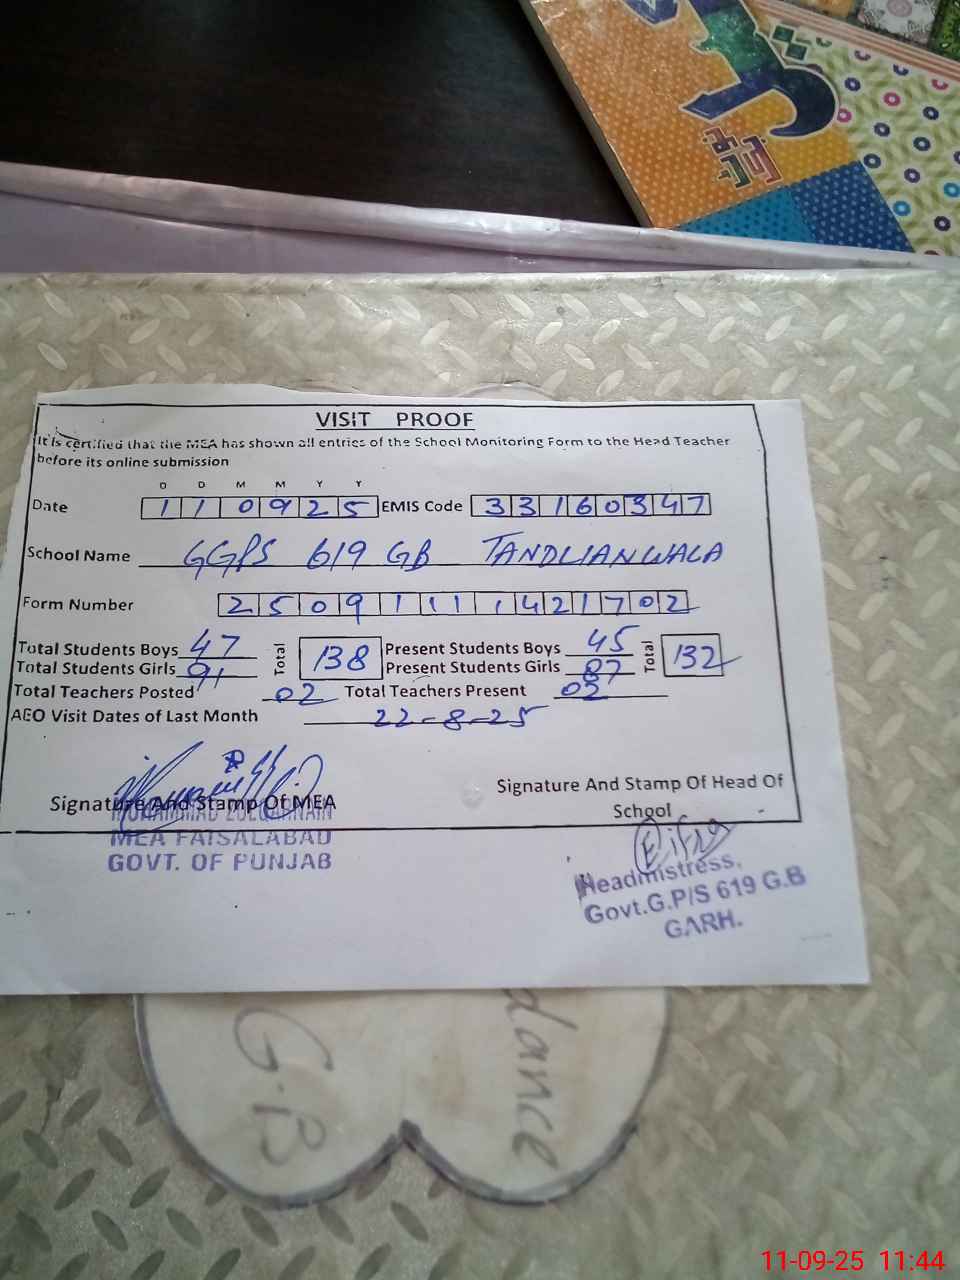 VISIT PROOF
It is certified that the MEA has shown all entries of the School Monitoring Form to the Head Teacher
before its online submission
D D M M Y Y
Date 1 1 0 9 2 5 EMIS Code 3 3 1 6 0 3 4 7
School Name GGPS 619 GB TANDLIANWALA
Form Number 2 5 0 9 1 1 1 1 4 2 1 7 0 2
Total Students Boys 47 Total 138 Present Students Boys 45 Total 132
Total Students Girls 91 Present Students Girls 87
Total Teachers Posted 02 Total Teachers Present 02
AEO Visit Dates of Last Month 22-8-25
Signature And Stamp Of MEA
Signature And Stamp Of Head Of
School
MUHAMMAD ZULQARNAIN
MEA FAISALABAD
GOVT. OF PUNJAB
Headmistress,
Govt.G.P/S 619 G.B
GARH.
G.B
11-09-25 11:44